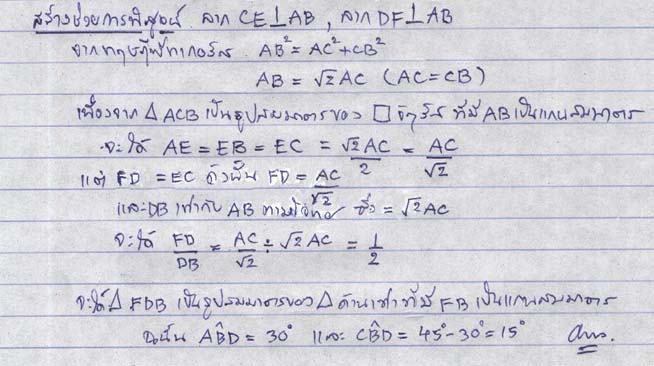 สร้างช่วยการพิสูจน์ ลาก CE⊥AB , ลาก DF⊥AB
จากทฤษฎีพีทาโกรัส AB² = AC²+CB²
AB = √2 AC (AC=CB)
เนื่องจาก Δ ACB เป็นรูปสมมาตรของ □ จัตุรัส ที่มี AB เป็นแกนสมมาตร
จะได้ AE = EB = EC = √2 AC/2 = AC/√2
แต่ FD = EC ดังนั้น FD = AC/√2
และ DB เท่ากับ AB ตามโจทย์ ซึ่ง = √2 AC
จะได้ FD/DB = AC/√2 ÷ √2 AC = 1/2
จะได้ Δ FDB เป็นรูปสมมาตรของ Δ ด้านเท่า ที่มี FB เป็นแกนสมมาตร
ฉะนั้น AB̂D = 30° และ CB̂D = 45°-30° = 15° Ans.